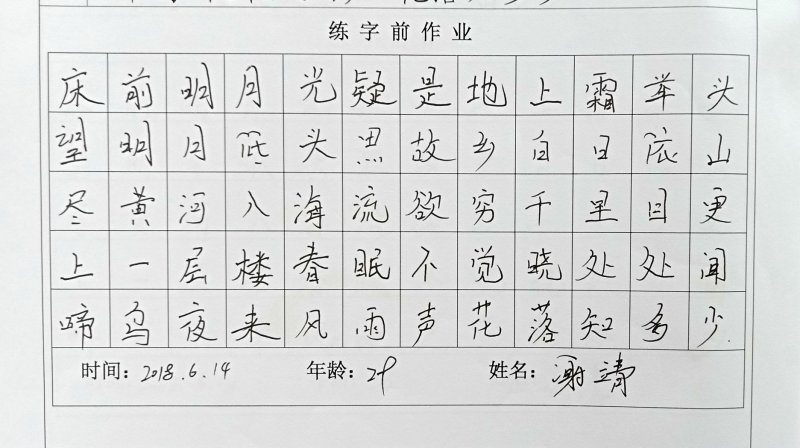 练字前作业
床前明月光疑是地上霜举头
望明月低头思故乡白日依山
尽黄河入海流欲穷千里目更
上一层楼春眠不觉晓处处闻
啼鸟夜来风雨声花落知多少
时间：2018.6.14 年龄：29 姓名：谢靖